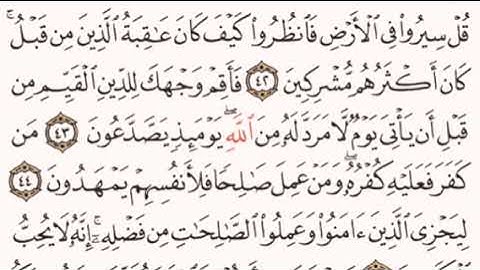 قُلْ سِيرُوا۟ فِى ٱلْأَرْضِ فَٱنظُرُوا۟ كَيْفَ كَانَ عَٰقِبَةُ ٱلَّذِينَ مِن قَبْلُ ۚ
كَانَ أَكْثَرُهُم مُّشْرِكِينَ ٤٢ فَأَقِمْ وَجْهَكَ لِلدِّينِ ٱلْقَيِّمِ مِن
قَبْلِ أَن يَأْتِىَ يَوْمٌ لَّا مَرَدَّ لَهُۥ مِنَ ٱللَّهِ ۖ يَوْمَئِذٍ يَصَّدَّعُونَ ٤٣ مَن
كَفَرَ فَعَلَيْهِ كُفْرُهُۥ ۖ وَمَنْ عَمِلَ صَٰلِحًا فَلِأَنفُسِهِمْ يَمْهَدُونَ ٤٤
لِيَجْزِىَ ٱلَّذِينَ ءَامَنُوا۟ وَعَمِلُوا۟ ٱلصَّٰلِحَٰتِ مِن فَضْلِهِۦٓ ۚ إِنَّهُۥ لَا يُحِبُّ